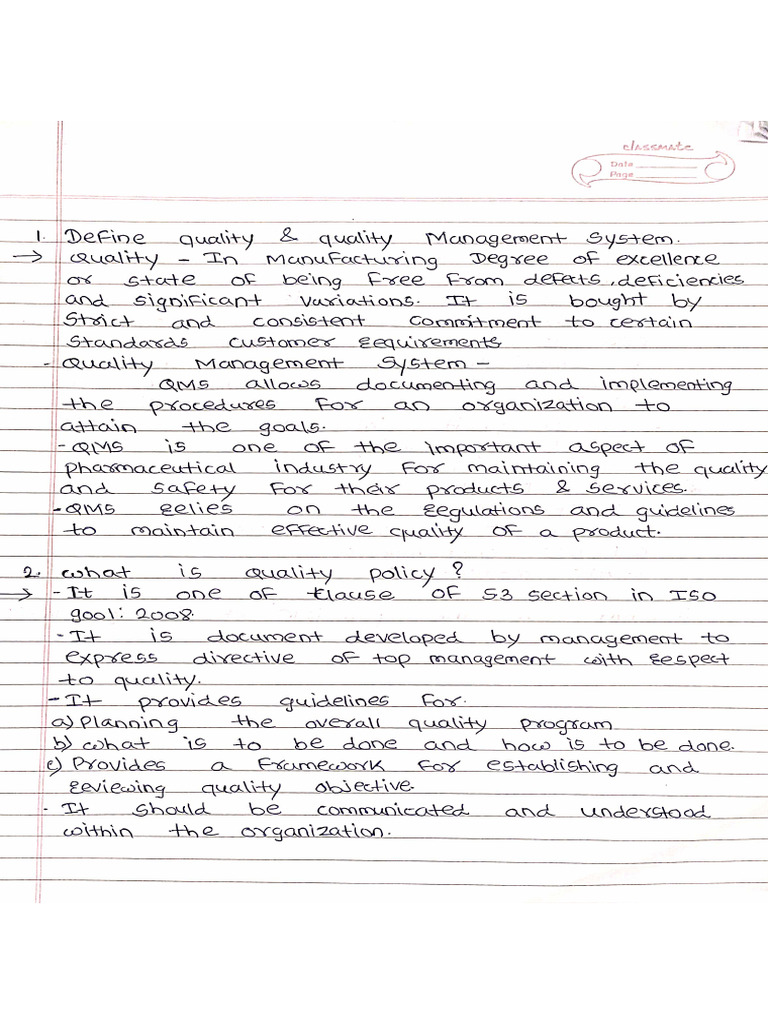 classmate
Date
Page
1. Define quality & quality Management System.
→ Quality - In Manufacturing Degree of excellence
or state of being free from defects, deficiencies
and significant variations. It is bought by
Strict and consistent commitment to certain
Standards customer requirements
- Quality Management System -
QMS allows documenting and implementing
the procedures for an organization to
attain the goals.
- QMS is one of the important aspect of
pharmaceutical industry for maintaining the quality
and safety for their products & services.
- QMS relies on the regulations and guidelines
to maintain effective quality of a product.
2. What is quality policy?
→ - It is one of clause of 53 section in ISO
9001: 2008.
- It is document developed by management to
express directive of top management with respect
to quality.
- It provides guidelines for.
a) Planning the overall quality program
b) what is to be done and how is to be done.
c) Provides a framework for establishing and
reviewing quality objective.
- It should be communicated and understood
within the organization.